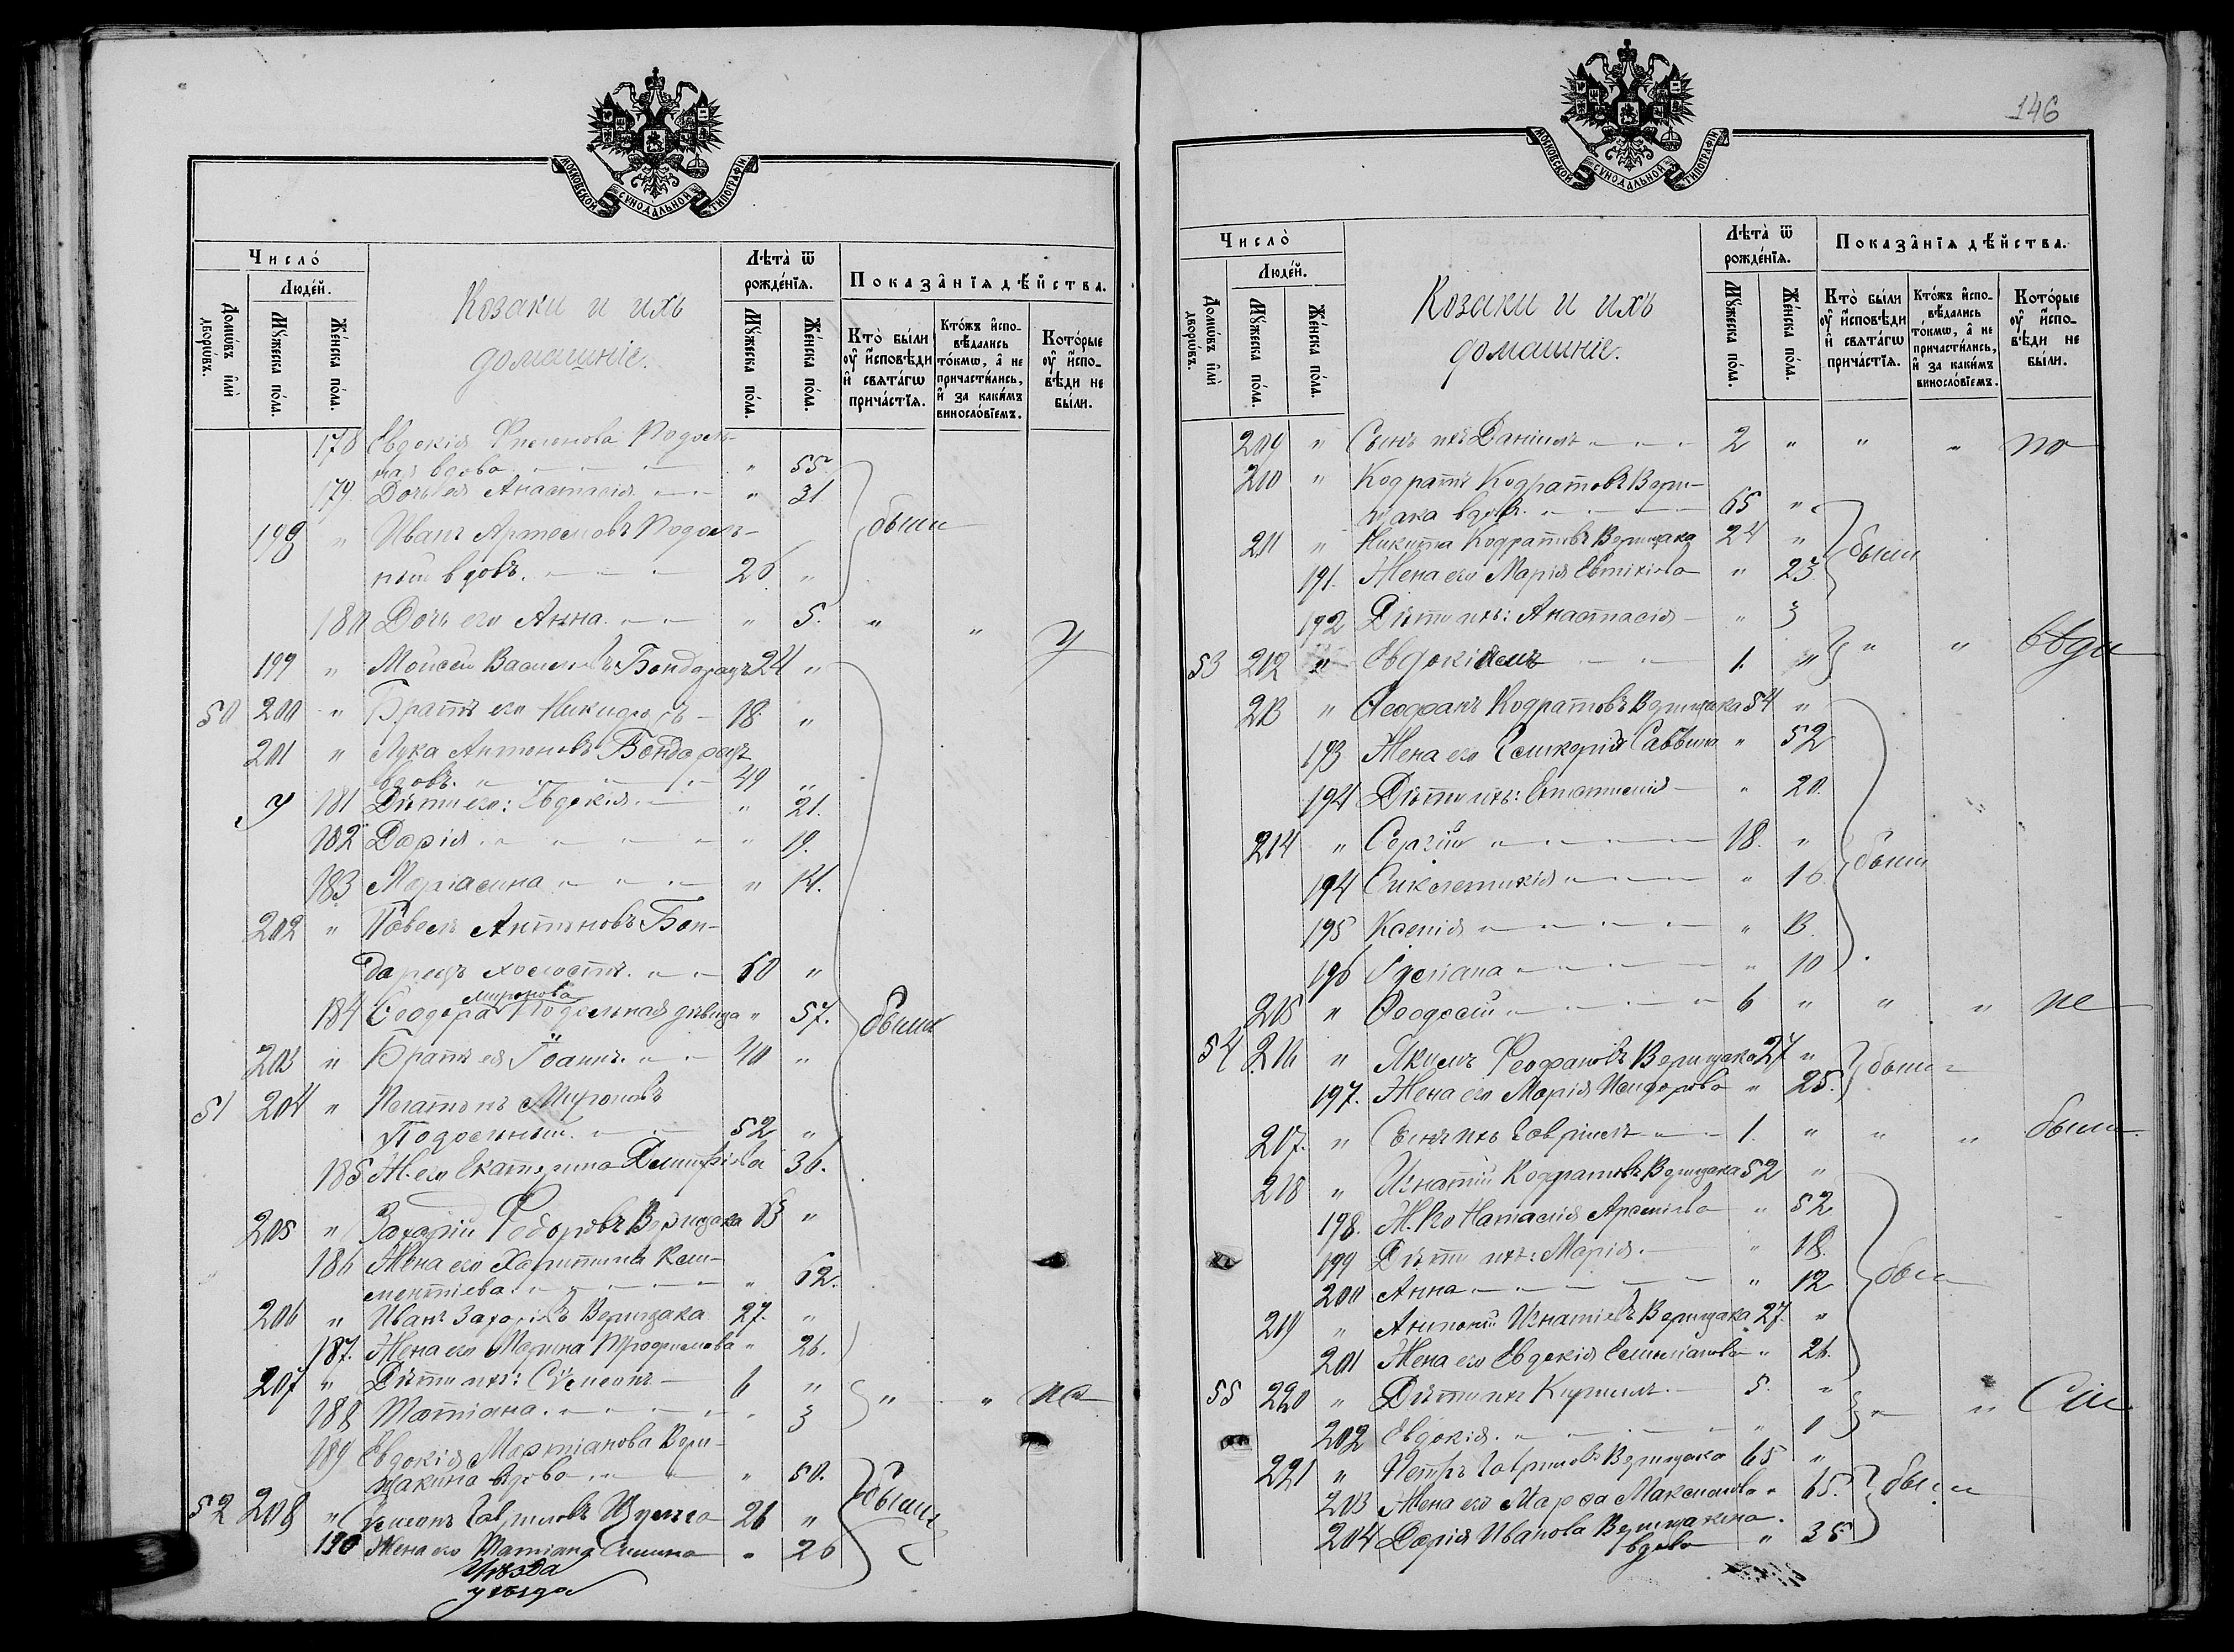 МОСКОВСКОЙ СУНОДАЛЬНОЙ ТИПОГРАФIИ
Число̀
Людéй.
Домѡ́въ и҆лѝ дворѡ́въ.
Мꙋ́жеска по́ла.
Же́нска по́ла.
Козаки и ихъ
домашніе.
Лѣта̀ ѿ рожде́нїѧ.
Мꙋ́жеска по́ла.
Же́нска по́ла.
Показа̑нїѧ дѣ́йства.
Кто̀ бы́ли ᲂу҆ и҆сповѣ́ди и҆ свѧта́гѡ прича́стїѧ.
Кто́жъ и҆спо-вѣ́дались то́кмѡ, а҆ не причасти́лись, и҆ за каки́мъ винословїемъ.
Кото́рые ᲂу҆ и҆спо-вѣ́ди не бы́ли.
178 Евдокія Подоль-
ная вдова " 55
179. Дочь ея Анастасія " 31
198 " Иванъ Артемовъ Подоль- были
ный вдовъ. 26 "
180 Дочь его Анна. " 5. " " у
199 " Моисей Васильевъ Бондарецъ 24 "
50 200 " Братъ его Никифоръ 18. "
201 " Лука Антоновъ Бондарецъ
вдовъ. 49 "
181 Дѣти его: Евдокія. " 21.
182 Дарія " 19.
183 Маріамна " 14.
202 " Павелъ Антоновъ Бон-
дарецъ холостъ. 60 "
Миронова
184 Ѳеодора Подольная дѣвица " 57. были
203 " Братъ ея Іоаннъ. 40 "
51 204 " Платонъ Мироновъ
Подольный. 52 "
185 Ж. его Екатерина Димитріева 36.
205 " Захарій Ѳедоровъ Верещака "
186 Жена его Харитина Кли-
ментіева " 62.
206 " Иванъ Захаріевъ Верещака 27. "
187. Жена его Марина Трофимова " 26.
207 " Дѣти ихъ: Сѵмеонъ 6 "
188 Татіана. " 3 " " на
189 Евдокія Мартіанова Вере-
щакина вдова " 50.
52 208 " Гавриловъ 26 " были
190 Жена его Татіана " 26
уѣзда
146
МОСКОВСКОЙ СУНОДАЛЬНОЙ ТИПОГРАФIИ
Число̀
Людéй.
Домѡ́въ и҆лѝ дворѡ́въ.
Мꙋ́жеска по́ла.
Же́нска по́ла.
Козаки и ихъ
домашніе.
Лѣта̀ ѿ рожде́нїѧ.
Мꙋ́жеска по́ла.
Же́нска по́ла.
Показа̑нїѧ дѣ́йства.
Кто̀ бы́ли ᲂу҆ и҆сповѣ́ди и҆ свѧта́гѡ прича́стїѧ.
Кто́жъ и҆спо-вѣ́дались то́кмѡ, а҆ не причасти́лись, и҆ за каки́мъ винословїемъ.
Кото́рые ᲂу҆ и҆спо-вѣ́ди не бы́ли.
209 " Сынъ ихъ Даніилъ 2 " " " по
210 " Кодратъ Кодратовъ Вере-
щака вдовъ. 65 "
211 " Никита Кодратовъ Верещака 24 " были
191. Жена его Марія Евтихіева " 23
192 Дѣти ихъ: Анастасія " 3
53 212 " Евдокимъ 1. " " " вѣди
213 " Ѳеофанъ Кодратовъ Верещака 54 "
193 Жена его Гликерія Саввина " 52
194 Дѣти ихъ: " 20.
214 " Сергій 18. " были
194 Синклетикія " 16
195 Ксенія " 13.
196 Іуліана " 10
215 " Ѳеодосій 6 " " " не
54 216 " Якимъ Ѳеофановъ Верещака 27 " были
197. Жена его Марія Исидорова " 25.
217. " Сынъ ихъ Гавріилъ 1. " " " были
218 " Игнатій Кодратовъ Верещака 52 "
198. Ж. его Наталія " 52
199 Дѣти ихъ: Марія. " 18.
200 Анна " 12 были
219 " Антоній Игнатіевъ Верещака 27. "
201 Жена его Евдокія Емиліанова " 26.
55 220 " Дѣти ихъ Кириллъ. 5. "
202 Евдокія. " 1 " " Сіи
221 " Петръ Гавриловъ Верещака 65 "
203 Жена его Марѳа Максимова " 65. были
204 Дарія Иванова Верещакина.
вдова " 35